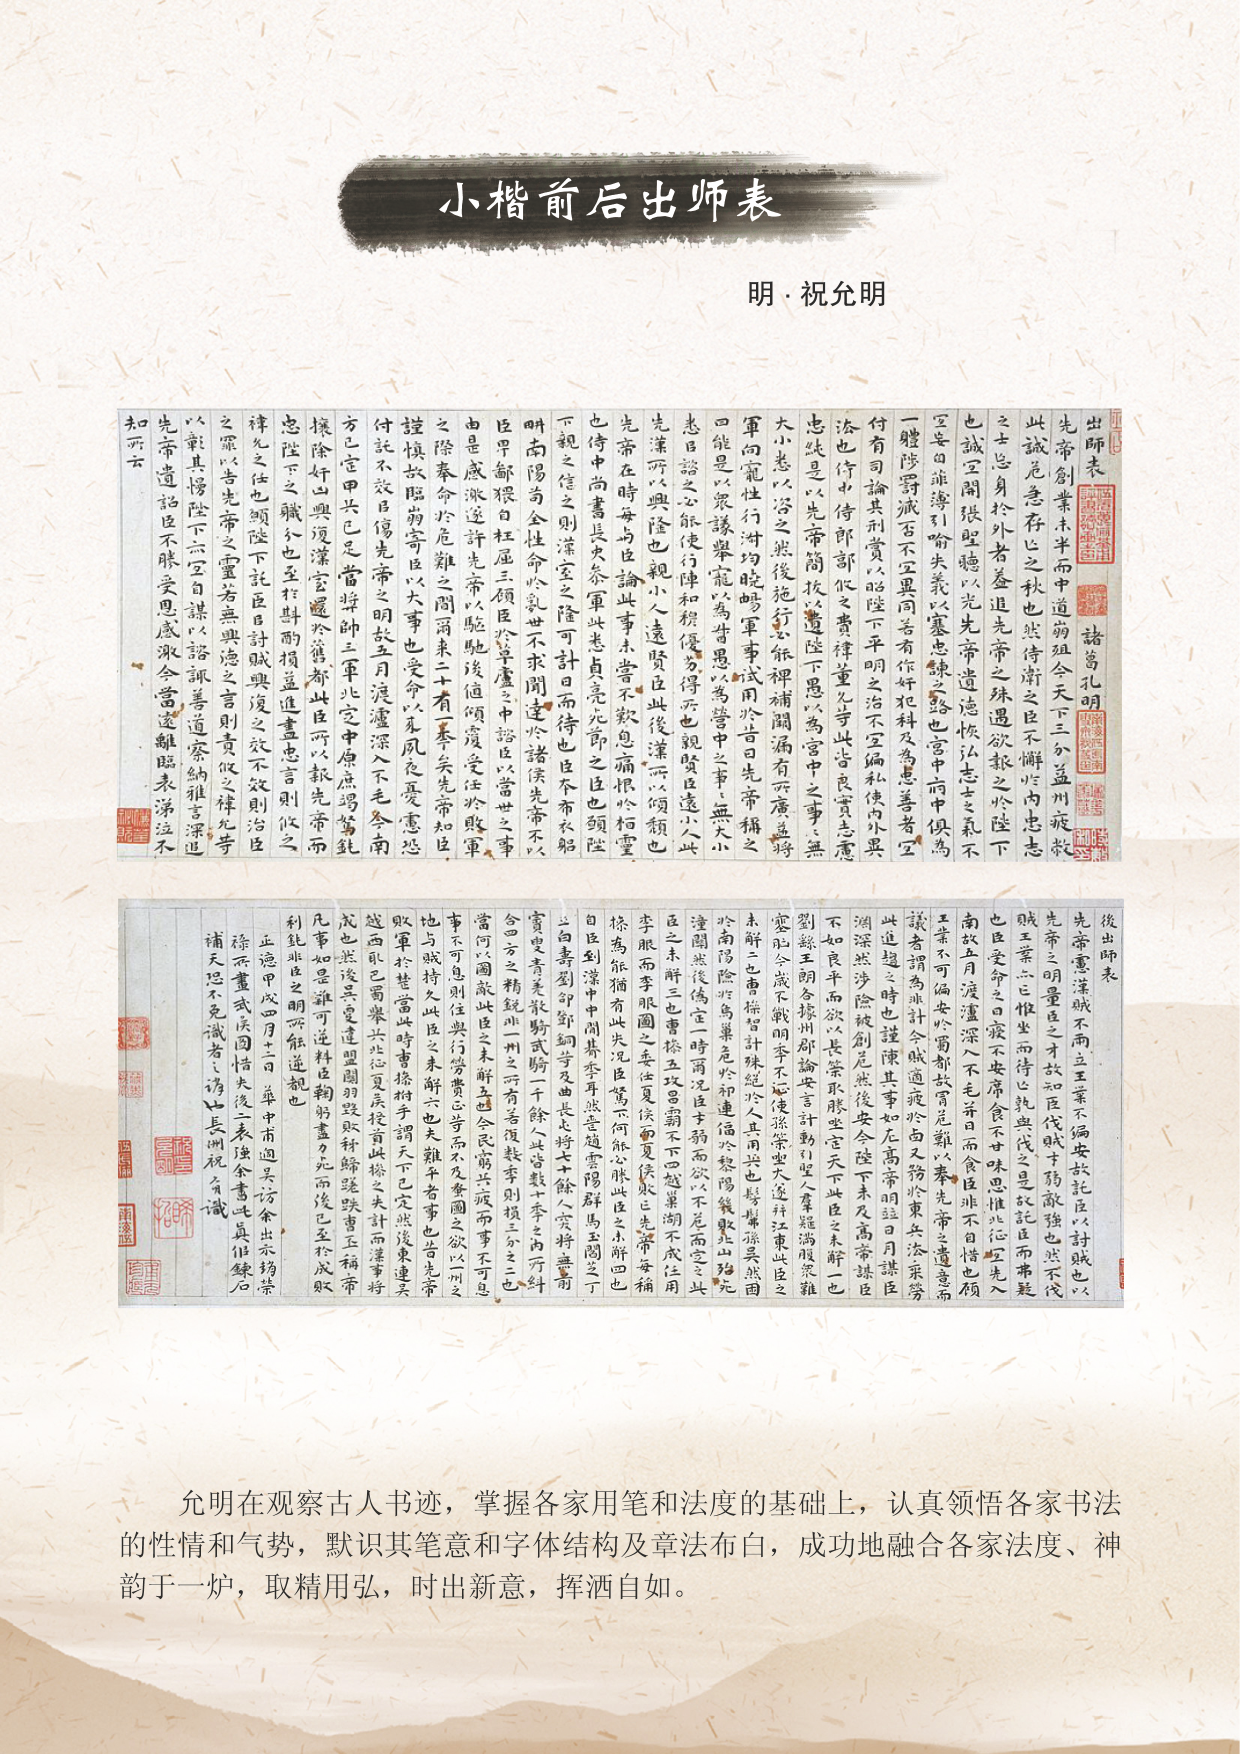 小楷前后出师表
明·祝允明
出師表 諸葛孔明
先帝創業未半而中道崩殂今天下三分益州疲敝
此誠危急存亡之秋也然侍衛之臣不懈於内忠志
之士忘身於外者蓋追先帝之殊遇欲報之於陛下
也誠宜開張聖聽以光先帝遺德恢弘志士之氣不
宜妄自菲薄引喻失義以塞忠諫之路也宮中府中俱為
一體陟罰臧否不宜異同若有作奸犯科及為忠善者宜
付有司論其刑賞以昭陛下平明之治不宜偏私使内外異
法也侍中侍郎郭攸之費禕董允等此皆良實志慮
忠純是以先帝簡拔以遺陛下愚以為宮中之事〻無
大小悉以咨之然後施行必能裨補闕漏有所廣益將
軍向寵性行淑均曉暢軍事試用於昔日先帝稱之
曰能是以衆議舉寵以為督愚以為營中之事〻無大小
悉以諮之必能使行陣和穆優劣得所也親賢臣遠小人此
先漢所以興隆也親小人遠賢臣此後漢所以傾頹也
先帝在時每与臣論此事未嘗不歎息痛恨於桓靈
也侍中尚書長史參軍此悉貞亮死節之臣也願陛
下親之信之則漢室之隆可計日而待也臣本布衣躬
耕南陽苟全性命於亂世不求聞達於諸侯先帝不以
臣卑鄙猥自枉屈三顧臣於草廬之中諮臣以當世之事
由是感激遂許先帝以驅馳後值傾覆受任於敗軍
之際奉命於危難之間爾来二十有一年矣先帝知臣
謹慎故臨崩寄臣以大事也受命以来夙夜憂慮恐
付託不效以傷先帝之明故五月渡瀘深入不毛今南
方已定甲兵已足當奬帥三軍北定中原庶竭駑鈍
攘除奸凶興復漢室還於舊都此臣所以報先帝而
忠陛下之職分也至於斟酌損益進盡忠言則攸之
禕允之任也願陛下託臣以討賊興復之效不效則治臣
之罪以告先帝之靈若無興德之言則責攸之禕允等
以彰其慢陛下亦宜自謀以諮諏善道察納雅言深追
先帝遺詔臣不勝受恩感激今當遠離臨表涕泣不
知所云
後出師表
先帝慮漢賊不兩立王業不偏安故託臣以討賊也以
先帝之明量臣之才故知臣伐賊才弱敵強也然不伐
賊王業亦亡惟坐而待亡孰與伐之是故託臣而弗疑
也臣受命之日寢不安席食不甘味思惟北征宜先入
南故五月渡瀘深入不毛并日而食臣非不自惜也顧
王業不可偏安於蜀都故冒危難以奉先帝之遺意而
議者謂為非計今賊適疲於西又務於東兵法乘勞
此進趨之時也謹陳其事如左高帝明並日月謀臣
淵深然涉險被創危然後安今陛下未及高帝謀臣
不如良平而欲以長策取勝坐定天下此臣之未解一也
劉繇王朗各據州郡論安言計動引聖人羣疑滿腹衆難
塞胸今歲不戰明季不征使孫策坐大遂并江東此臣之
未解二也曹操智計殊絕於人其用兵也髣髴孫吳然困
於南陽險於烏巢危於祁連偪於黎陽幾敗北山殆死
潼關然後偽定一時爾况臣才弱而欲以不危而定之此
臣之未解三也曹操五攻昌霸不下四越巢湖不成任用
李服而李服圖之委任夏侯而夏侯敗亡先帝每稱
操為能猶有此失况臣駑下何能必勝此臣之未解四也
自臣到漢中中間朞季耳然喪趙雲陽群馬玉閻芝丁
立白壽劉郃鄧銅等及曲長屯將七十餘人突將無前
賨叟青羌散騎武騎一千餘人此皆數十季之内所糾
合四方之精銳非一州之所有若復數季則損三分之二也
當何以圖敵此臣之未解五也今民窮兵疲而事不可息
事不可息則住與行勞費正等而不及蚤圖之欲以一州之
地与賊持久此臣之未解六也夫難平者事也昔先帝
敗軍於楚當此時曹操拊手謂天下已定然後東連吳
越西取巴蜀舉兵北征夏侯授首此操之失計而漢事將
成也然後吳更違盟關羽毀敗秭歸蹉跌曹丕稱帝
凡事如是難可逆料臣鞠躬盡力死而後已至於成敗
利鈍非臣之明所能逆覩也
正德甲戌四月十二日 華中甫過吳訪余出示
祿所畫武侯圖惜失後二表強余書此真侶鍊石
補天恐不免識者之誚也長洲祝 識
允明在观察古人书迹，掌握各家用笔和法度的基础上，认真领悟各家书法
的性情和气势，默识其笔意和字体结构及章法布白，成功地融合各家法度、神
韵于一炉，取精用弘，时出新意，挥洒自如。